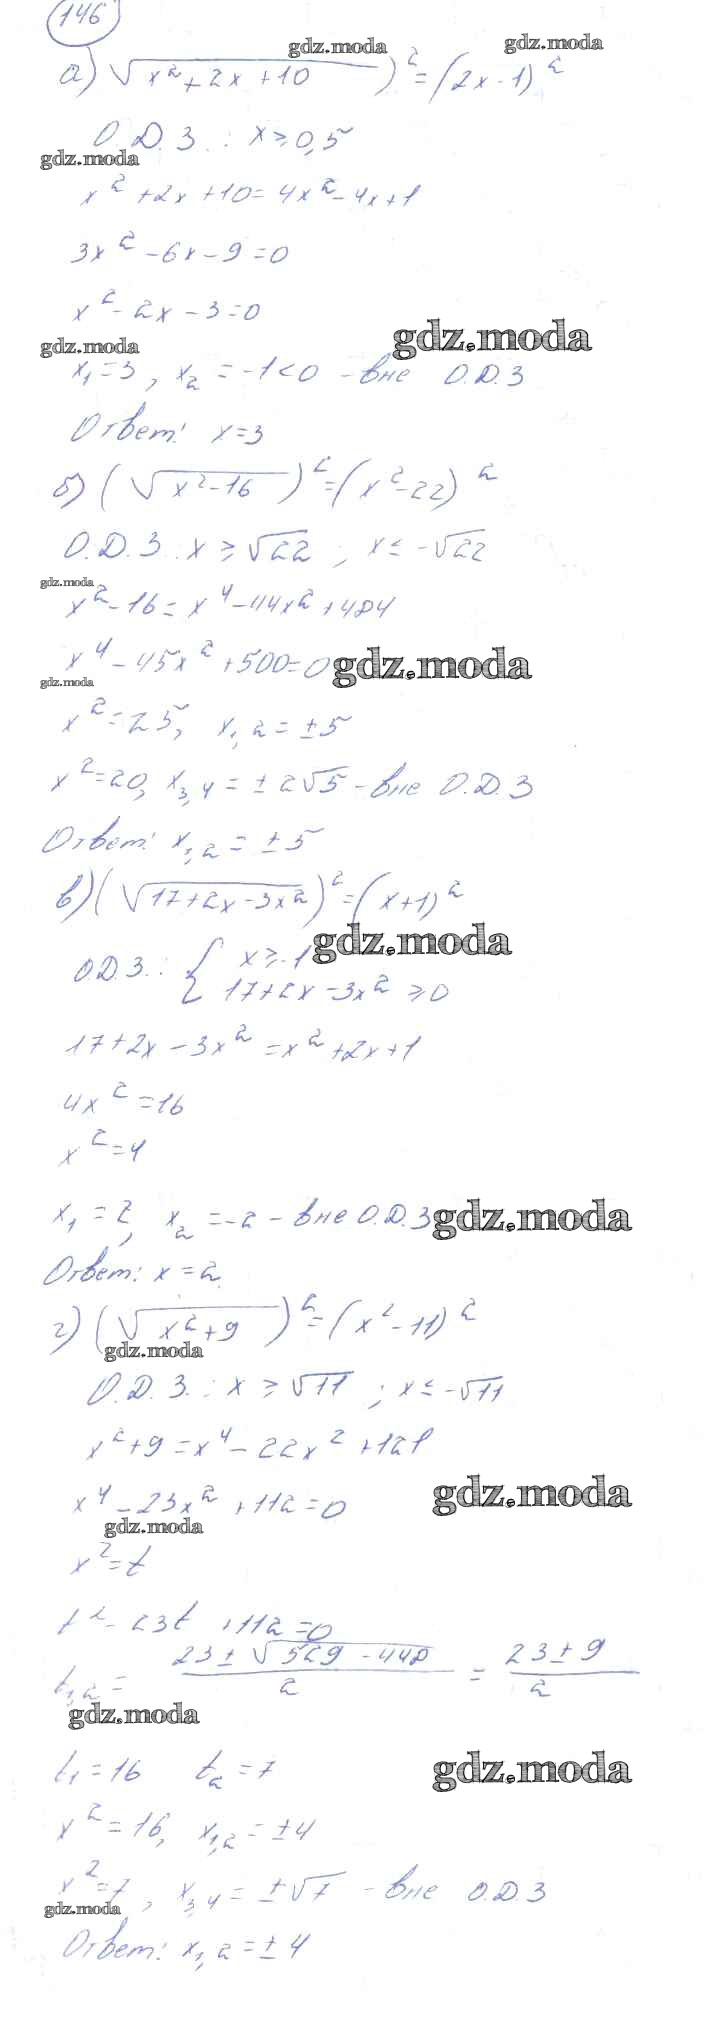 146
gdz.moda gdz.moda
а) √x²+2x+10 )² = (2x-1)²
О.Д.З.: x≥0,5
gdz.moda
x²+2x+10=4x²-4x+1
3x²-6x-9=0
x²-2x-3=0
gdz.moda
gdz.moda
x₁=3, x₂=-1<0 - вне О.Д.З
Ответ: x=3
б) (√x²-16)²=(x²-22)²
О.Д.З.: x≥√22; x≤-√22
gdz.moda
x²-16=x⁴-44x²+484
x⁴-45x²+500=0
gdz.moda
gdz.moda
x²=25, x₁,₂=±5
x²=20, x₃,₄=±2√5 - вне О.Д.З
Ответ: x₁,₂=±5
в) (√17+2x-3x²)²=(x+1)²
gdz.moda
ОДЗ.: { x≥-1
17+2x-3x²≥0
17+2x-3x²=x²+2x+1
4x²=16
x²=4
x₁=2, x₂=-2 - вне О.Д.З
gdz.moda
Ответ: x=2
г) (√x²+9)²=(x²-11)²
gdz.moda
О.Д.З.: x≥√11; x≤-√11
x²+9=x⁴-22x²+121
x⁴-23x²+112=0
gdz.moda
gdz.moda
x²=t
t²-23t+112=0
t₁,₂=(23±√529-448)/2=(23±9)/2
gdz.moda
t₁=16 t₂=7
gdz.moda
x²=16, x₁,₂=±4
x²=7, x₃,₄=±√7 - вне О.Д.З
gdz.moda
Ответ: x₁,₂=±4